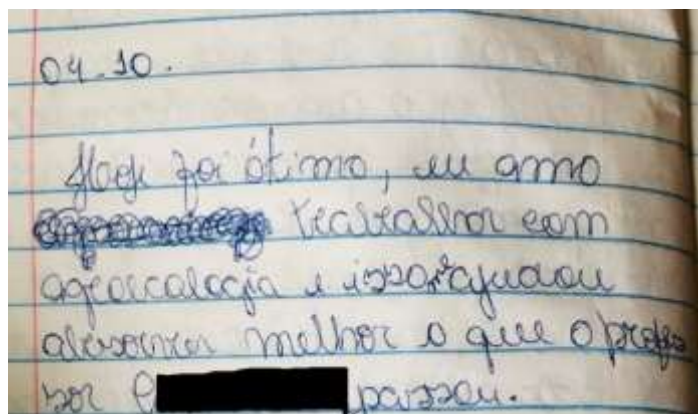 04.10.
Hoje foi ótimo, eu amo
trabalhar com
agroecologia e isso me ajudou
absorver melhor o que o profes
sor passou.